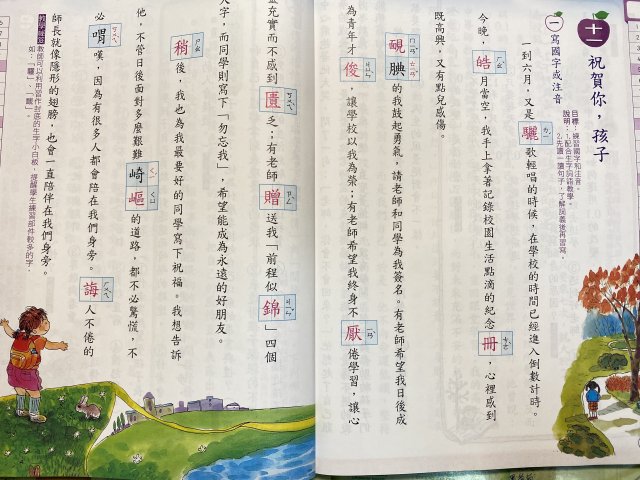 十一
祝賀你，孩子
目標：練習國字和注音。
說明：1.配合生字詞語教學。
2.先讀一讀句子，了解詞義後再習寫。
一 寫國字或注音
一到六月，又是驪ㄌㄧˊ歌輕唱的時候，在學校的時間已經進入倒數計時。
今晚，皓ㄏㄠˋ月當空，我手上拿著記錄校園生活點滴的紀念冊ㄘㄜˋ，心裡感到
既高興，又有點兒感傷。
靦ㄇㄧㄢˇ腆ㄊㄧㄢˇ的我鼓起勇氣，請老師和同學為我簽名。有老師希望我日後成
為青年才俊ㄐㄩㄣˋ，讓學校以我為榮；有老師希望我終身不厭ㄧㄢˋ倦學習，讓心
靈充實而不感到匱ㄎㄨㄟˋ乏；有老師贈ㄗㄥˋ送我「前程似錦ㄐㄧㄣˇ」四個
大字，而同學則寫下「勿忘我」，希望能成為永遠的好朋友。
稍ㄕㄠ後，我也為我最要好的同學寫下祝福。我想告訴
他，不管日後面對多麼艱難崎ㄑㄧˊ嶇ㄑㄩ的道路，都不必驚慌，不
必喟ㄎㄨㄟˋ嘆，因為有很多人都會陪在我們身旁。誨ㄏㄨㄟˋ人不倦的
師長就像隱形的翅膀，也會一直陪伴在我們身旁。
教學補給 教師可以利用習作封底的生字小白板，提醒學生練習部件較多的字，
如：「驪」、「靦」。